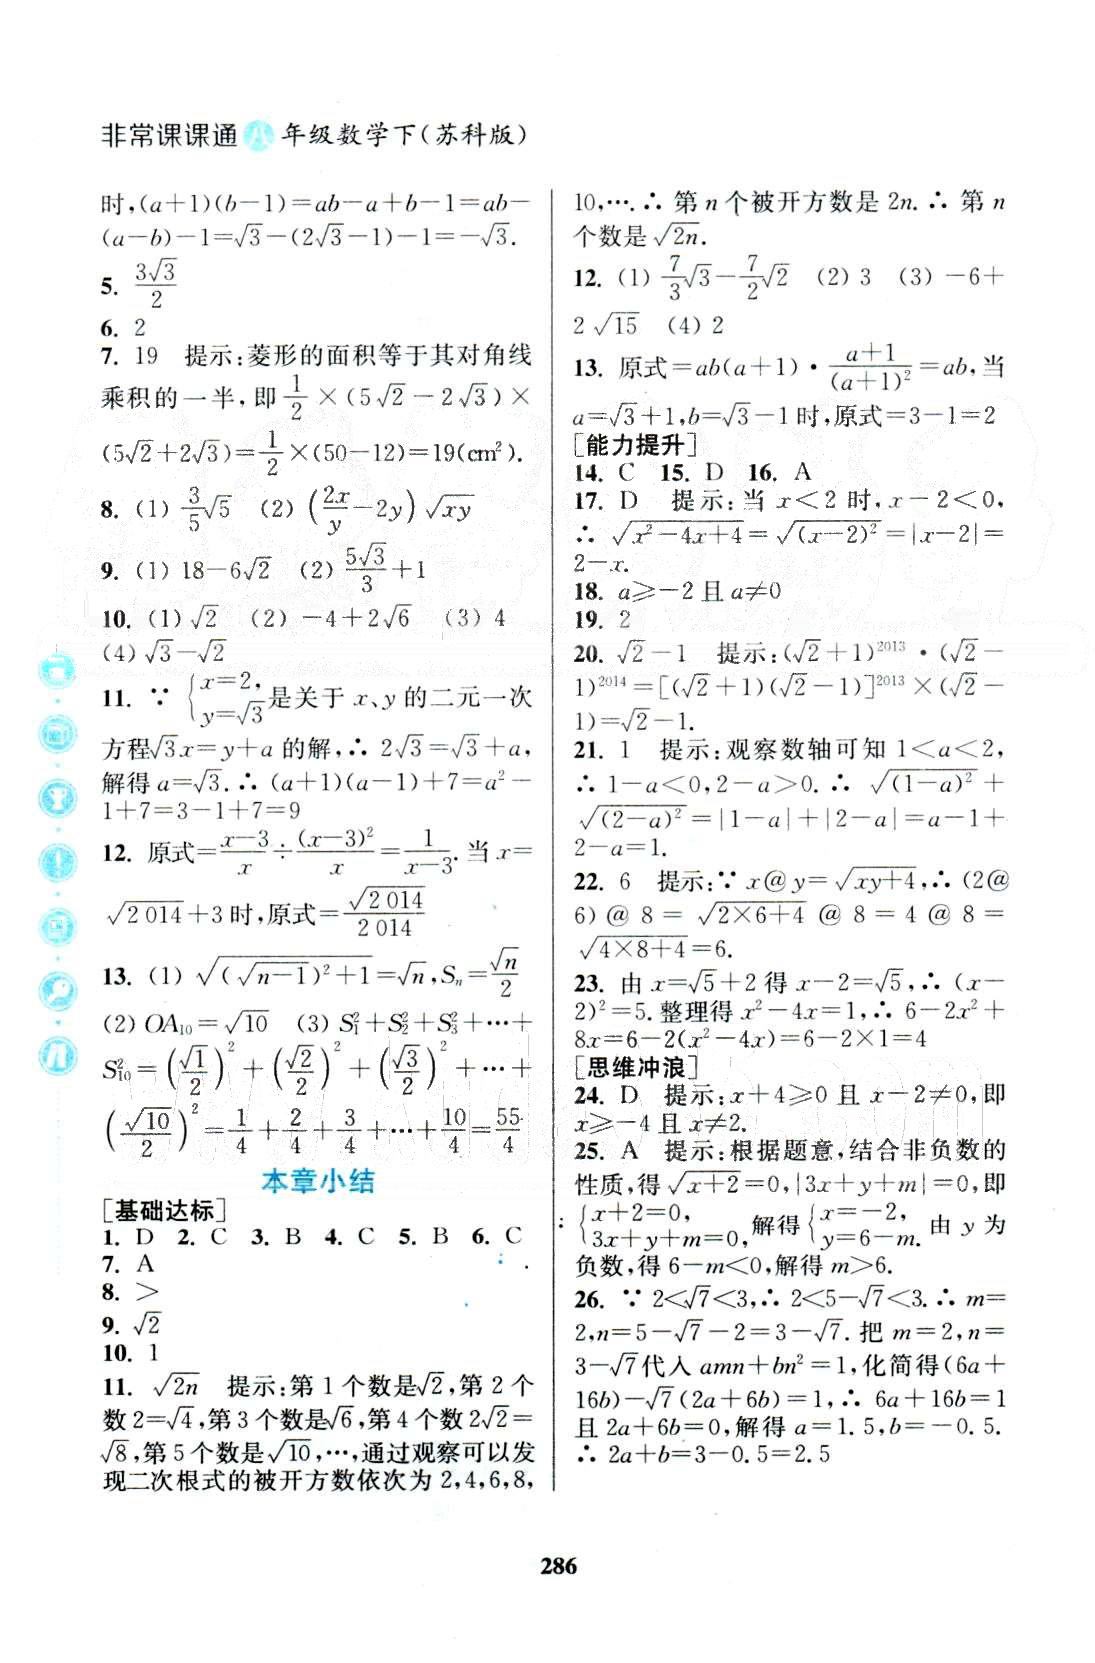 非常课课通八年级数学下(苏科版)
时,(a+1)(b-1)=ab-a+b-1=ab-
(a-b)-1=√3-(2√3-1)-1=-√3.
5. 3√3/2
6. 2
7. 19 提示:菱形的面积等于其对角线
乘积的一半,即 1/2 ×(5√2-2√3)×
(5√2+2√3)=1/2×(50-12)=19(cm²).
8. (1) 3/5√5 (2) (2x/y-2y)√xy
9. (1) 18-6√2 (2) 5√3/3+1
10. (1) √2 (2) -4+2√6 (3) 4
(4) √3-√2
11. ∵ {x=2, y=√3 是关于 x、y 的二元一次
方程√3x=y+a 的解,∴ 2√3=√3+a,
解得 a=√3.∴ (a+1)(a-1)+7=a²-
1+7=3-1+7=9
12. 原式=(x-3)/x÷(x-3)²/x=1/(x-3).当 x=
√2 014+3 时,原式=√2 014/2 014
13. (1) √((√n-1)²+1)=√n,Sₙ=√n/2
(2) OA₁₀=√10 (3) S₁²+S₂²+S₃²+…+
S₁₀²=(√1/2)²+(√2/2)²+(√3/2)²+…+
(√10/2)²=1/4+2/4+3/4+…+10/4=55/4
本章小结
[基础达标]
1. D 2. C 3. B 4. C 5. B 6. C
7. A
8. >
9. √2
10. 1
11. √2n 提示:第 1 个数是√2,第 2 个
数 2=√4,第 3 个数是√6,第 4 个数 2√2=
√8,第 5 个数是√10,…,通过观察可以发
现二次根式的被开方数依次为 2,4,6,8,
10,….∴ 第 n 个被开方数是 2n.∴ 第 n
个数是√2n.
12. (1) 7/3√3-7/2√2 (2) 3 (3) -6+
2√15 (4) 2
13. 原式=ab(a+1)·(a+1)/(a+1)²=ab,当
a=√3+1,b=√3-1 时,原式=3-1=2
[能力提升]
14. C 15. D 16. A
17. D 提示:当 x<2 时,x-2<0,
∴ √(x²-4x+4)=√((x-2)²)=|x-2|=
2-x.
18. a≥-2 且 a≠0
19. 2
20. √2-1 提示:(√2+1)²⁰¹³·(√2-
1)²⁰¹⁴=[(√2+1)(√2-1)]²⁰¹³×(√2-
1)=√2-1.
21. 1 提示:观察数轴可知 1<a<2,
∴ 1-a<0,2-a>0.∴ √((1-a)²)+
√((2-a)²)=|1-a|+|2-a|=a-1+
2-a=1.
22. 6 提示:∵ x@y=√(xy+4),∴ (2@
6)@8=√(2×6+4)@8=4@8=
√(4×8+4)=6.
23. 由 x=√5+2 得 x-2=√5,∴ (x-
2)²=5.整理得 x²-4x=1,∴ 6-2x²+
8x=6-2(x²-4x)=6-2×1=4
[思维冲浪]
24. D 提示:x+4≥0 且 x-2≠0,即
x≥-4 且 x≠2.
25. A 提示:根据题意,结合非负数的
性质,得√(x+2)=0,|3x+y+m|=0,即
{x+2=0, 3x+y+m=0, 解得 {x=-2, y=6-m. 由 y 为
负数,得 6-m<0,解得 m>6.
26. ∵ 2<√7<3,∴ 2<5-√7<3.∴ m=
2,n=5-√7-2=3-√7.把 m=2,n=
3-√7代入 amn+bn²=1,化简得(6a+
16b)-√7(2a+6b)=1,∴ 6a+16b=1
且 2a+6b=0,解得 a=1.5,b=-0.5.
∴ 2a+b=3-0.5=2.5
286